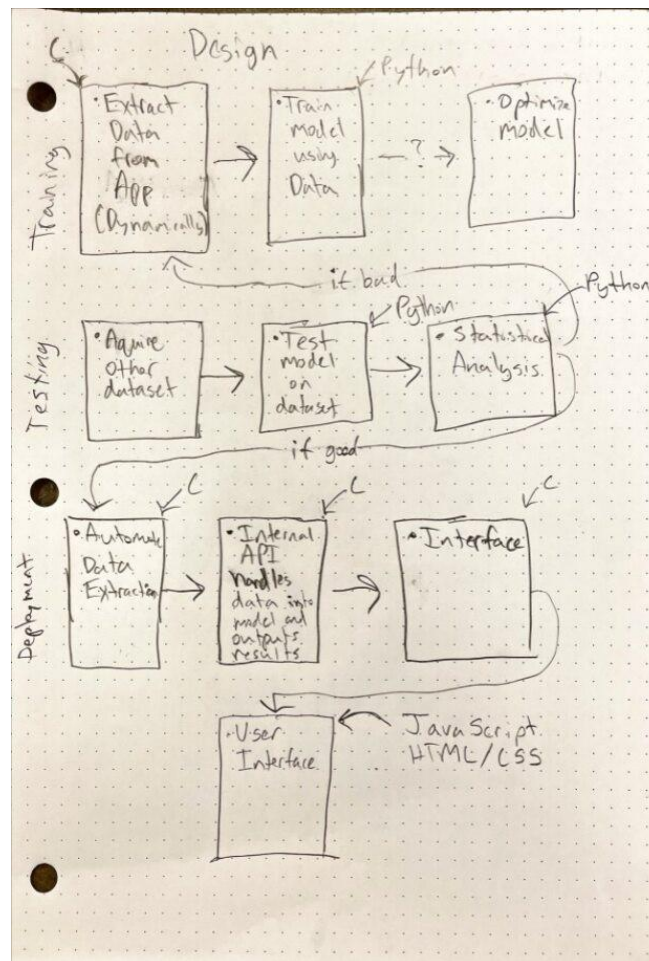 Design
C
Python
Training
• Extract
Data
from
App
(Dynamically)
• Train
model
using
Data
?
• Optimize
model
if bad
Python
Python
Testing
• Aquire
other
dataset
• Test
model
on
dataset
• Statistical
Analysis
if good
C
C
C
Deployment
• Automate
Data
Extraction
• Internal
API
handles
data into
model and
outputs
results
• Interface
• User
Interface
JavaScript
HTML/CSS